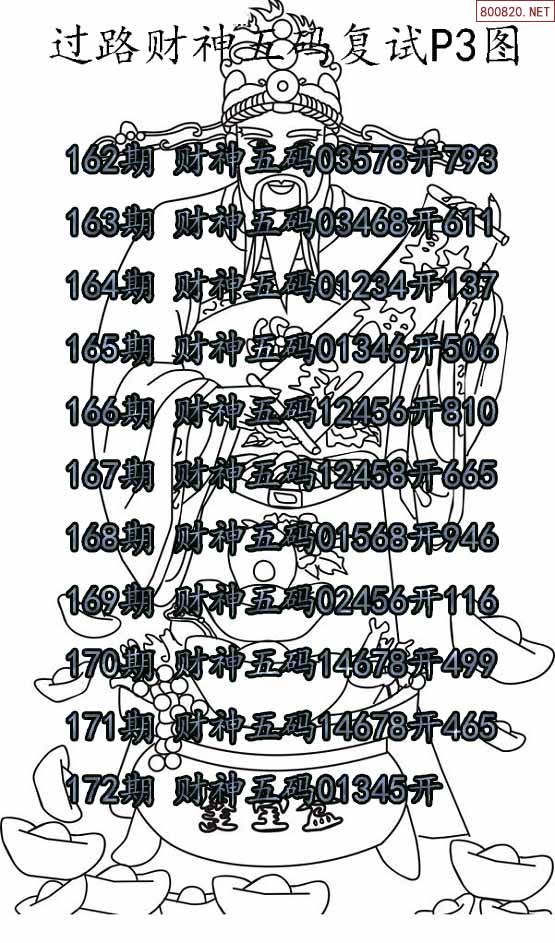 800820.NET
过路财神五码复试P3图
162期 财神五码03578开793
163期 财神五码03468开611
164期 财神五码01234开137
165期 财神五码01346开506
166期 财神五码12456开810
167期 财神五码12458开665
168期 财神五码01568开946
169期 财神五码02456开116
170期 财神五码14678开499
171期 财神五码14678开465
172期 财神五码01345开